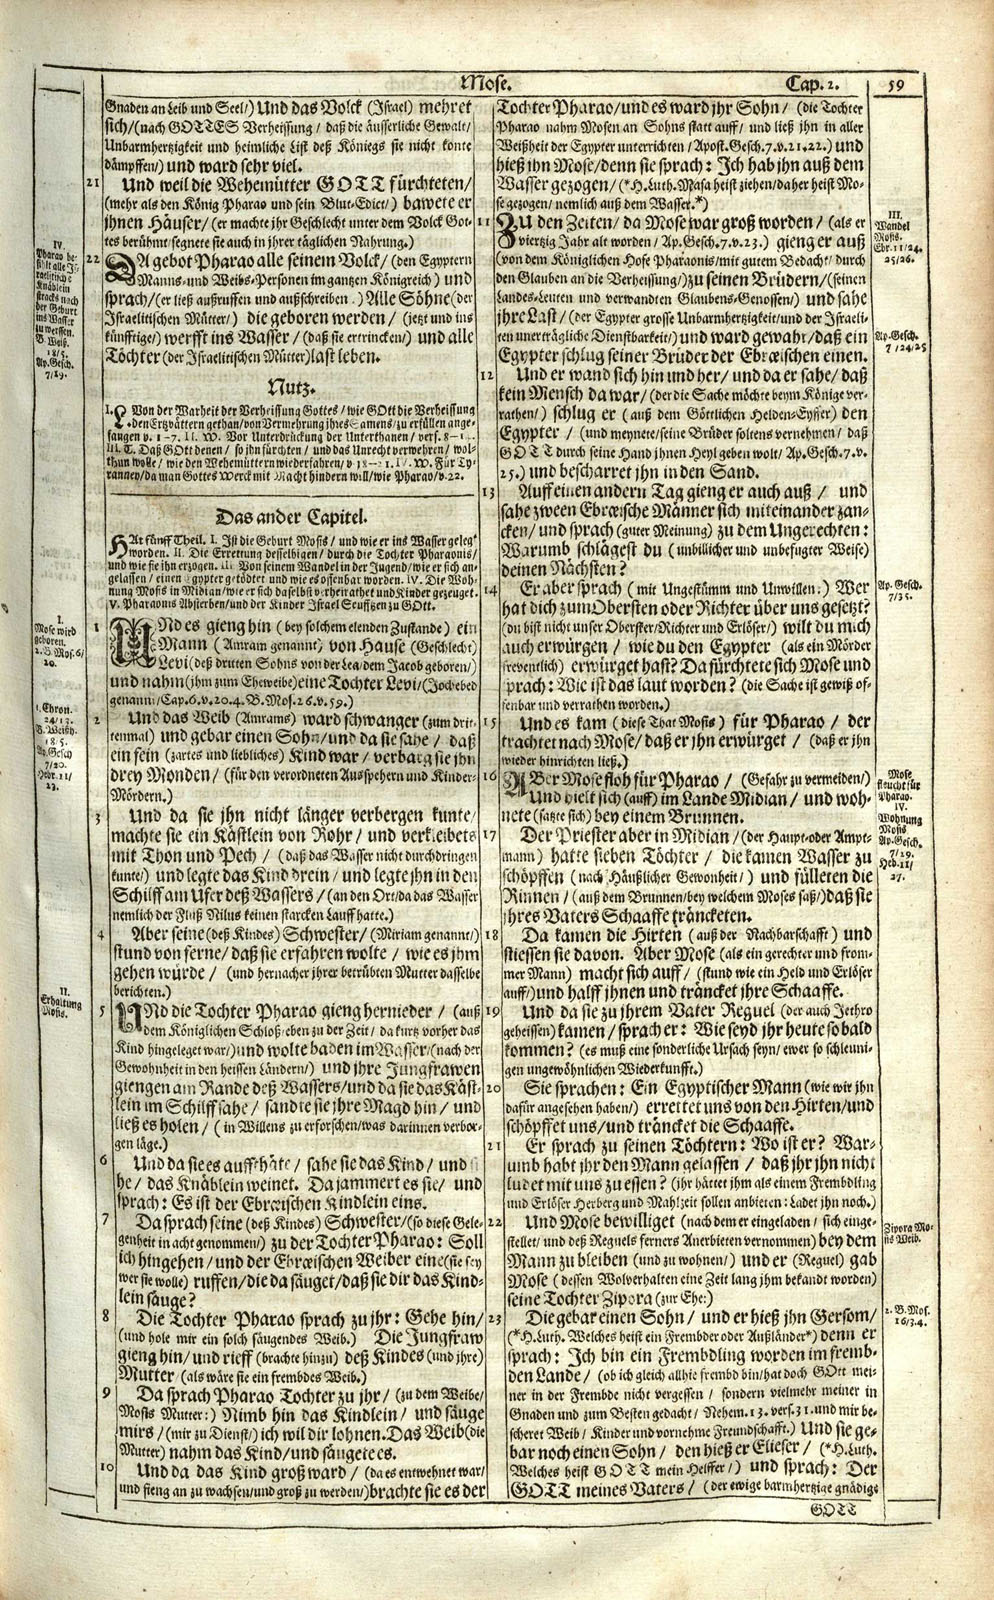 Mose. Cap. 2. 59
Gnaden an Leib und Seel/) Und das Volck (Israel) mehret
sich/ (nach GOTTES Verheissung / daß die äusserliche Gewalt/
Unbarmhertzigkeit und heimliche List deß Königs sie nicht konte
dämpffen/) und ward sehr viel.
21 Und weil die Wehemütter GOTT fürchteten/
(mehr als den König Pharao und sein Blut-Edict/) bawete er
jhnen Häuser/ (er machte jhr Geschlecht unter dem Volck Got-
tes berühmt/ segnete sie auch in jhrer täglichen Nahrung.)
IV.
Pharao be-
fihlt alle Is-
raelitische
Knäblein
stracks nach
der Geburt
ins Wasser
zu werffen.
B. Weiß.
18/5.
Ap. Gesch.
7/19.
22 DA gebot Pharao alle seinem Volck/ (den Egyptern
Manns- und Weibs-Personen im gantzen Königreich) und
sprach/ (er ließ außruffen und außschreiben.) Alle Söhne (der
Israelitischen Mütter/) die geboren werden/ (jetzt und ins
künfftige) werfft ins Wasser/ (daß sie ertrincken/) und alle
Töchter (der Israelitischen Mütter) last leben.
Nutz.
I. L. Von der Warheit der Verheissung Gottes/ wie GOtt die Verheissung
den Ertzvättern gethan/ von Vermehrung jhres Samens/ zu erfüllen ange-
fangen v. 1-7. II. W. Vor Unterdrückung der Unterthanen/ vers. 8-
III. T. Daß GOtt denen/ so jhn fürchten/ und das Unrecht verwehren/ wol-
thun wolle/ wie den Wehemüttern wiederfahren/ v. 18-21. IV. W. Für Ty-
ranney/ da man Gottes Werck mit Macht hindern will/ wie Pharao/ v. 22.
Das ander Capitel.
HAt fünff Theil. I. Ist die Geburt Mosis/ und wie er ins Wasser geleg
worden. II. Die Errettung desselbigen/ durch die Tochter Pharaonis/
und wie sie jhn erzogen. III. Von seinem Wandel in der Jugend/ wie er sich an-
gelassen/ einen Egypter getödtet und wie es offenbar worden. IV. Die Woh-
nung Mosis in Midian/ wie er sich daselbst verheirathet und Kinder gezeuget.
V. Pharaonis Absterben/ und der Kinder Israel Seufftzen zu GOtt.
I.
Mose wird
geboren.
2. B. Mos. 6/
20.
1 UNd es gieng hin (bey solchem elenden Zustande) ein
Mann (Amram genannt) von Hause (Geschlecht)
Levi (deß dritten Sohns von der Lea/ dem Jacob geboren/)
und nahm (jhm zum Eheweibe) eine Tochter Levi/ (Jochebed
genannt/ Cap. 6. v. 20. 4. B. Mos. 26. v. 59.)
1. Chron.
24/13.
B. Weißh.
18/5.
Ap. Gesch
7/20.
Hebr. 11/
23.
2 Und das Weib (Amrams) ward schwanger (zum drit-
tenmal) und gebar einen Sohn/ und da sie sahe/ daß
ein fein (zartes und liebliches) Kind war/ verbarg sie jhn
drey Monden/ (für den verordneten Ausspehern und Kinder-
Mördern.)
3 Und da sie jhn nicht länger verbergen kunte/
machte sie ein Kästlein von Rohr/ und verkleibets
mit Thon und Pech/ (daß das Wasser nicht durchdringen
kunte/) und legte das Kind drein/ und legte jhn in den
Schilff am Ufer deß Wassers/ (an den Ort/ da das Wasser
nemlich der Fluß Nilus keinen starcken Lauff hatte.)
4 Aber seine (deß Kindes) Schwester/ (Miriam genannt/)
stund von ferne/ daß sie erfahren wolte/ wie es jhm
gehen würde/ (und hernacher jhrer betrübten Mutter dasselbe
berichten.)
II.
Erhaltung
Mosis.
5 UNd die Tochter Pharao gieng hernieder/ (auß
dem Königlichen Schloß eben zu der Zeit/ da kurtz vorher das
Kind hingeleget war/) und wolte baden im Wasser/ (nach der
Gewohnheit in den heissen Ländern/) und jhre Jungfrawen
giengen am Rande deß Wassers/ und da sie das Käst-
lein im Schilff sahe/ sandte sie jhre Magd hin/ und
ließ es holen/ (in Willens zu erforschen/ was darinnen verbor-
gen läge.)
6 Und da sie es auffthäte/ sahe sie das Kind/ und si
he/ das Knäblein weinet. Da jammert es sie/ und
sprach: Es ist der Ebræischen Kindlein eins.
7 Da sprach seine (deß Kindes) Schwester/ (so diese Gele-
genheit in acht genommen/) zu der Tochter Pharao: Soll
ich hingehen/ und der Ebræischen Weiber eine (sie sey
wer sie wolle) ruffen/ die da säuget/ daß sie dir das Kind-
lein säuge?
8 Die Tochter Pharao sprach zu jhr: Gehe hin/
(und hole mir ein solch säugendes Weib.) Die Jungfraw
gieng hin/ und rieff (brachte hinzu) deß Kindes (und jhre)
Mutter (als wäre sie ein frembdes Weib.)
9 Da sprach Pharao Tochter zu jhr/ (zu dem Weibe/
Mosis Mutter:) Nimb hin das Kindlein/ und säuge
mirs/ (mir zu Dienst/) ich wil dir lohnen. Das Weib (die
Mutter) nahm das Kind/ und säugete es.
10 Und da das Kind groß ward/ (da es entwehnet war/
und fieng an zu wachsen/ und groß zu werden/) brachte sie es der
Tochter Pharao/ und es ward jhr Sohn/ (die Tochter
Pharao nahm Mosen an Sohns statt auff/ und ließ jhn in aller
Weißheit der Egypter unterrichten/ Apost. Gesch. 7. v. 21. 22.) und
hieß jhn Mose/ denn sie sprach: Ich hab jhn auß dem
Wasser gezogen/ (*H. Luth. Masa heist ziehen/ daher heist Mo-
se gezogen/ nemlich auß dem Wasser.*)
III.
Wandel
Mosis.
Ebr. 11/24.
25/26.
11 ZU den Zeiten/ da Mose war groß worden/ (als er
viertzig Jahr alt worden/ Ap. Gesch. 7. v. 23.) gieng er auß
(von dem Königlichen Hofe Pharaonis/ mit gutem Bedacht/ durch
den Glauben an die Verheissung/) zu seinen Brüdern/ (seinen
Landes-Leuten und verwandten Glaubens-Genossen/) und sahe
jhre Last/ (der Egypter grosse Unbarmhertzigkeit/ und der Israeli-
ten unerträgliche Dienstbarkeit/) und ward gewahr/ daß ein
Egypter schlug seiner Brüder der Ebræischen einen.
Ap. Gesch.
7/24/25
12 Und er wand sich hin und her/ und da er sahe/ daß
kein Mensch da war/ (der die Sache möchte beym Könige ver-
rathen/) schlug er (auß dem Göttlichen Helden-Eyffer) den
Egypter/ (und meynete/ seine Brüder soltens vernehmen/ daß
GOTT durch seine Hand jhnen Heyl geben wolt/ Ap. Gesch. 7. v.
25.) und bescharret jhn in den Sand.
13 Auff einen andern Tag gieng er auch auß/ und
sahe zween Ebræische Männer sich miteinander zan-
cken/ und sprach (guter Meinung) zu dem Ungerechten:
Warumb schlägest du (unbillicher und unbefugter Weise)
deinen Nächsten?
Ap. Gesch.
7/35.
14 Er aber sprach (mit Ungestümm und Unwillen:) Wer
hat dich zum Obersten oder Richter über uns gesetzt?
(du bist nicht unser Oberster/ Richter und Erlöser/) wilt du mich
auch erwürgen/ wie du den Egypter (als ein Mörder
freventlich) erwürget hast? Da fürchtete sich Mose und
sprach: Wie ist das laut worden? (die Sache ist gewiß of-
fenbar und verrathen worden.)
15 Und es kam (diese That Mosis) für Pharao/ der
trachtet nach Mose/ daß er jhn erwürget/ (daß er jhn
wieder hinrichten ließ.)
Mose
fleucht für
Pharao.
IV.
Wohnung
Mosis
Ap. Gesch.
7/29.
Heb. 11/
27.
16 ABer Mose floh für Pharao/ (Gefahr zu vermeiden/)
Und hielt sich (auff) im Lande Midian/ und woh-
nete (satzte sich) bey einem Brunnen.
17 Der Priester aber in Midian/ (der Haupt- oder Ampt-
mann) hatte sieben Töchter/ die kamen Wasser zu
schöpffen (nach Häußlicher Gewonheit/) und fülleten die
Rinnen/ (auß dem Brunnen/ bey welchem Moses saß/) daß sie
jhres Vaters Schaaffe träncketen.
18 Da kamen die Hirten (auß der Nachbarschafft) und
stiessen sie davon. Aber Mose (als ein gerechter und from-
mer Mann) macht sich auff/ (stund wie ein Held und Erlöser
auff/) und halff jhnen und träncket jhre Schaaffe.
19 Und da sie zu jhrem Vater Reguel (der auch Jethro
geheissen) kamen/ sprach er: Wie seyd jhr heute so bald
kommen? (es muß eine sonderliche Ursach seyn/ ewer so schleuni-
gen ungewöhnlichen Wiederkunfft.)
20 Sie sprachen: Ein Egyptischer Mann (wie wir jhn
dafür angesehen haben/) errettet uns von den Hirten/ und
schöpffet uns/ und träncket die Schaaffe.
21 Er sprach zu seinen Töchtern: Wo ist er? War-
umb habt jhr den Mann gelassen/ daß jhr jhn nicht
ludet mit uns zu essen? (jhr hättet jhm als einem Frembdling
und Erlöser Herberg und Mahlzeit sollen anbieten: Ladet jhn noch.)
Zipora Mo-
sis Weib.
22 Und Mose bewilliget (nach dem er eingeladen/ sich einge-
stellet/ und deß Reguels ferners Anerbieten vernommen) bey dem
Mann zu bleiben (und zu wohnen/) und er (Reguel) gab
Mose (dessen Wolverhalten eine Zeit lang jhm bekandt worden)
seine Tochter Zipora (zur Ehe:)
2. B. Mos.
16/3.4.
23 Die gebar einen Sohn/ und er hieß jhn Gersom/
(*H. Luth. Welches heist ein Frembder oder Außländer*) denn er
sprach: Ich bin ein Frembdling worden im fremb-
den Lande/ (ob ich gleich allhie frembd bin/ hat doch GOtt mei-
ner in der Frembde nicht vergessen/ sondern vielmehr meiner in
Gnaden und zum Besten gedacht/ Nehem. 13. vers. 31. und mir be-
scheret Weib/ Kinder und vornehme Freundschafft.) Und sie ge-
bar noch einen Sohn/ den hieß er Elieser/ (*H. Luth.
Welches heist GOTT mein Helffer/) und sprach: Der
GOTT meines Vaters/ (der ewige barmhertzige gnädige
GOTT